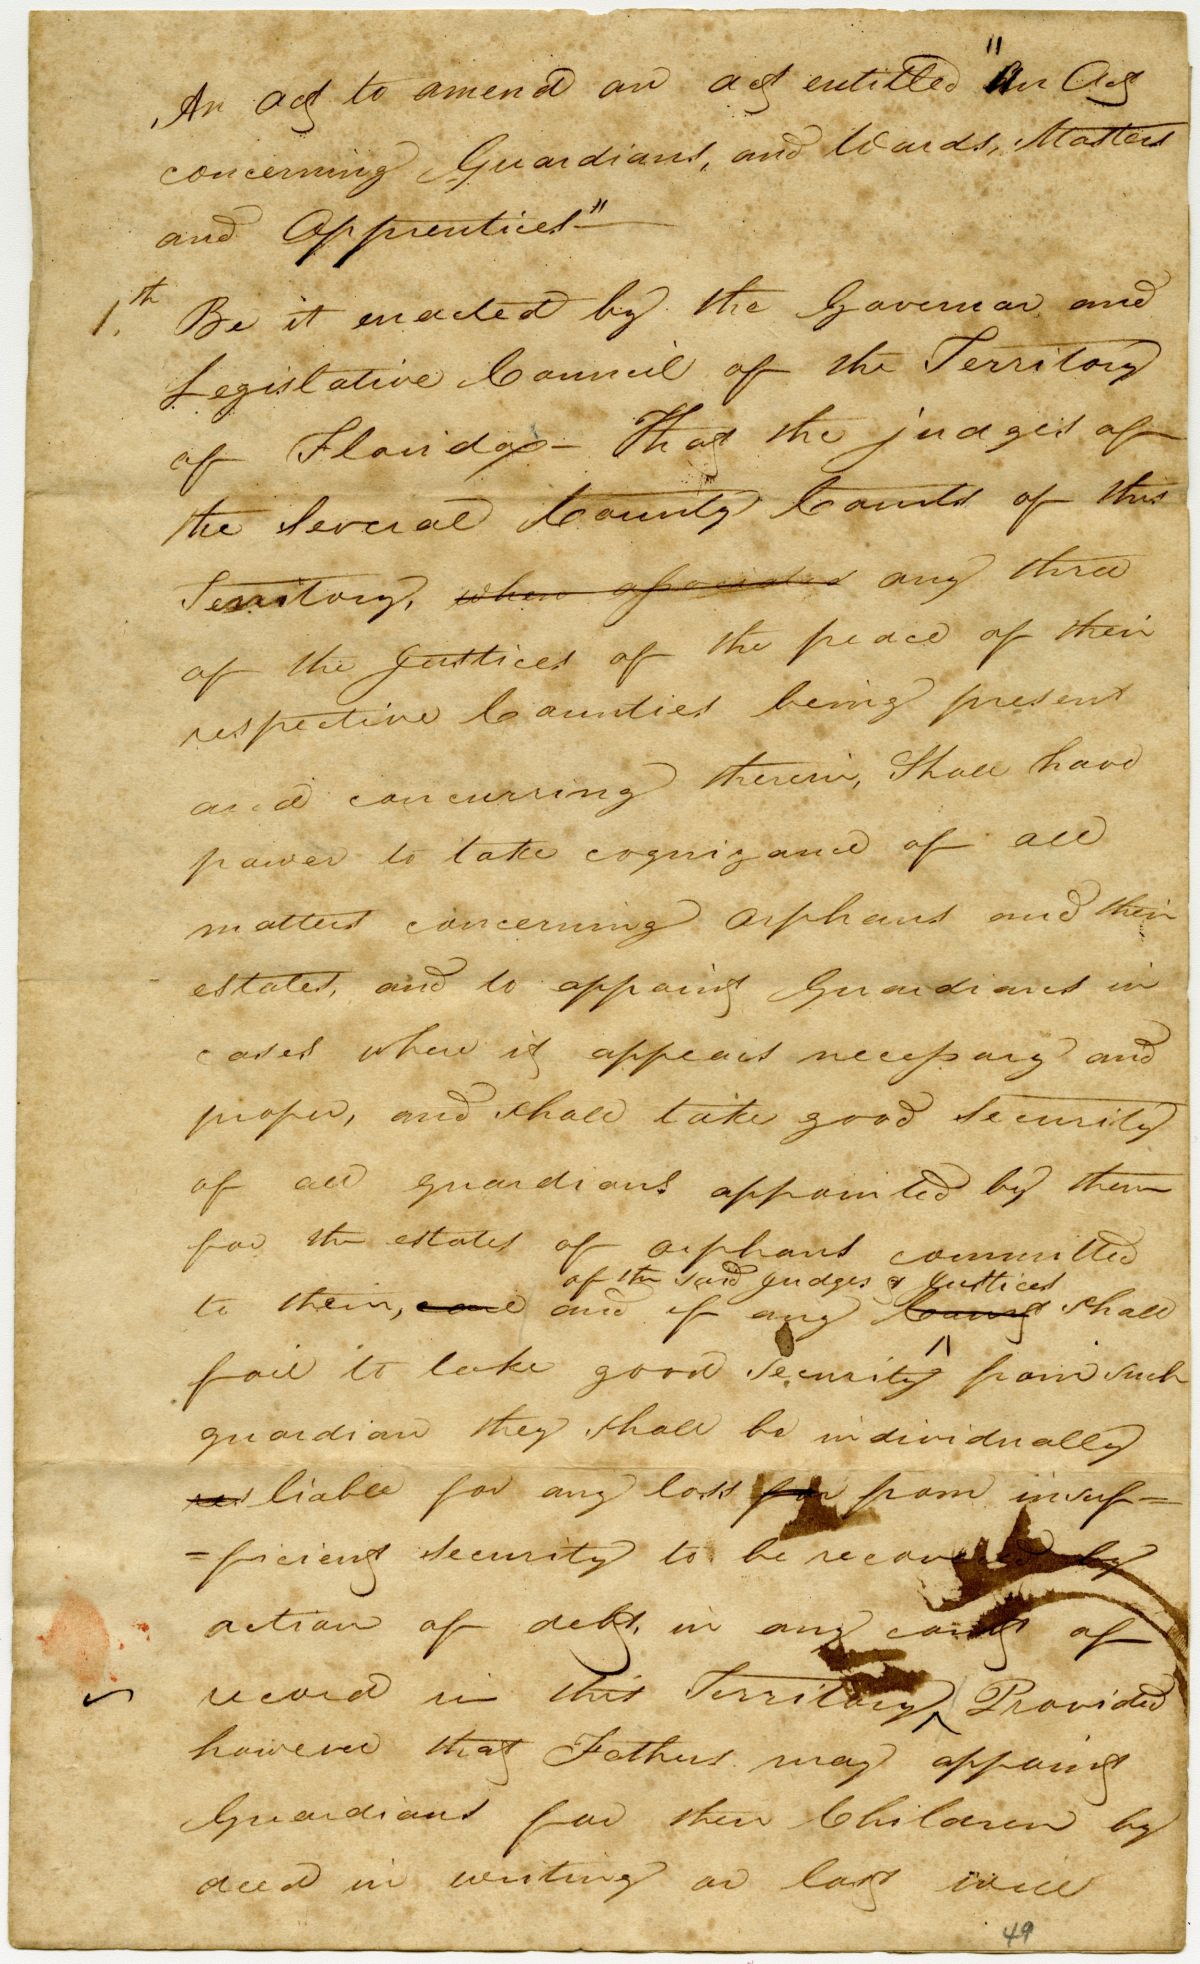 An Act to amend an act entitled "An Act
concerning Guardians, and Wards, Masters
and Apprentices"
1.th Be it enacted by the Governor and
Legislative Council of the Territory
of Florida - That the judges of
the Several County Courts of this
Territory, any three
of the Justices of the peace of their
respective Counties being present
and concurring therein, Shall have
power to take cognizance of all
matters concerning orphans and their
estates, and to appoint Guardians in
cases where it appears necessary and
proper, and shall take good Security
of all guardians appointed by them
for the estates of orphans committed
of the said Judges & Justices
to them, and if any Court shall
fail to take good Security from such
guardian they shall be individually
liable for any loss for from insuf=
=ficient Security to be recovered by
action of debt, in any court of
record in this Territory, Provided
however that Fathers may appoint
Guardians for their Children by
deed in writing or last will
49